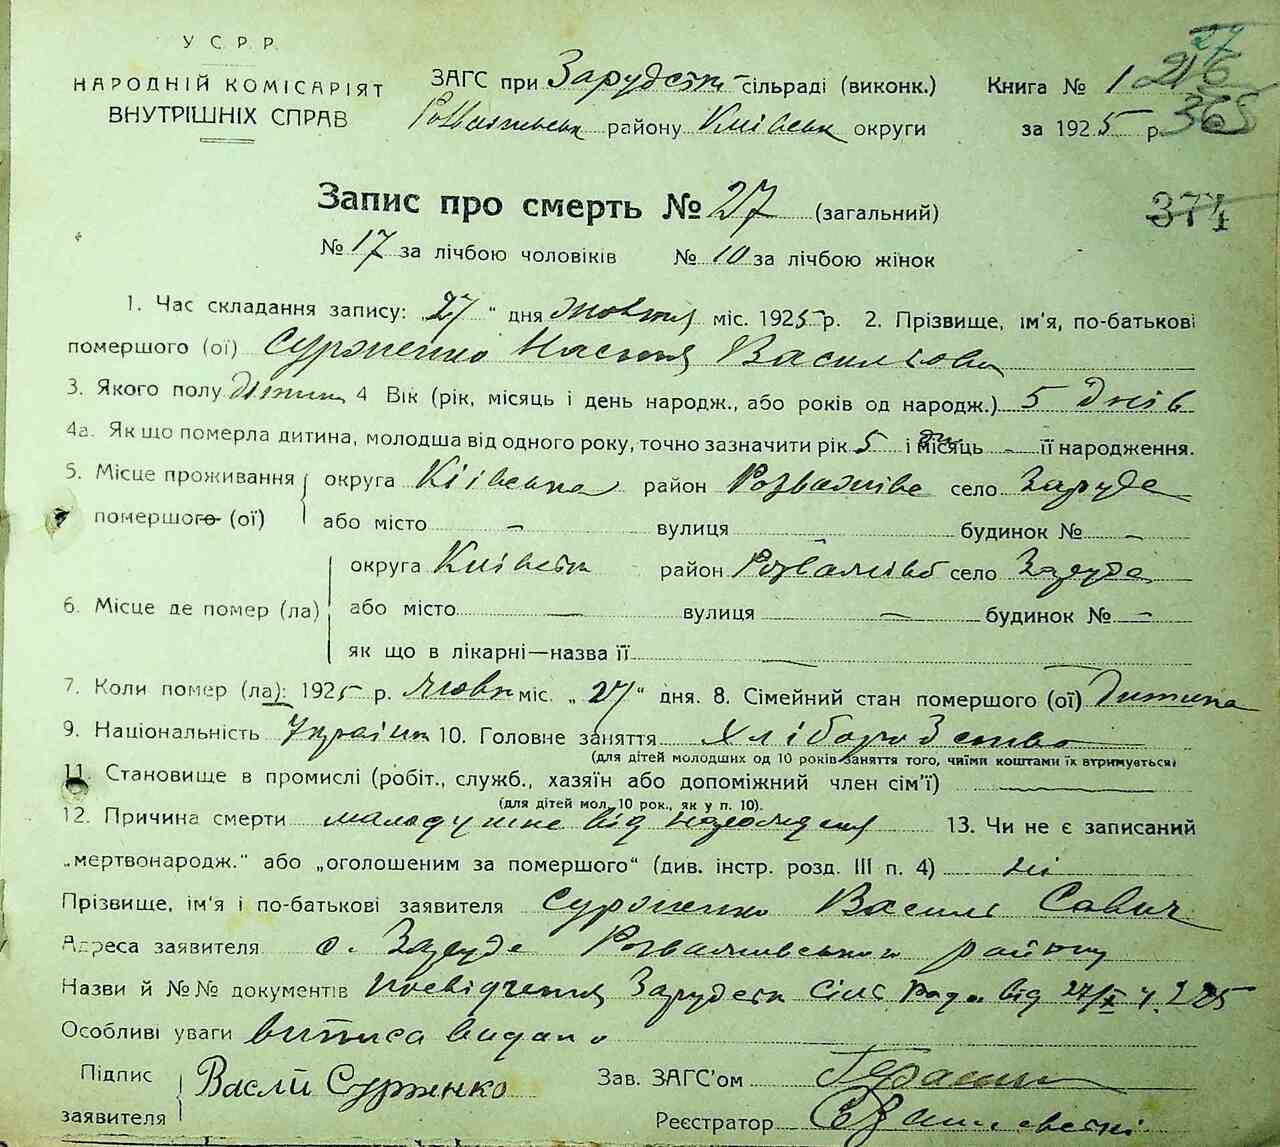 У С Р Р
НАРОДНІЙ КОМІСАРІЯТ
ВНУТРІШНІХ СПРАВ
ЗАГС при Зарудськ сільраді (виконк.)
Розважівськ району Київськ округи
Книга № 1
за 1925 р.
27
216
365
374
Запис про смерть № 27 (загальний)
№ 17 за лічбою чоловіків № 10 за лічбою жінок
1. Час складання запису: „27" дня жовтня міс. 1925 р. 2. Прізвище, ім'я, по-батькові
помершого (ої) Сурженко Настя Василівна
3. Якого полу дитина 4 Вік (рік, місяць і день народж., або років од народж.) 5 днів
4а. Як що померла дитина, молодша від одного року, точно зазначити рік 5 і місяць дн — її народження.
5. Місце проживання помершого (ої) округа Київська район Розважівс село Заруде
або місто — вулиця — будинок № —
6. Місце де помер (ла) округа Київськ район Розважівс село Заруде
або місто — вулиця — будинок № —
як що в лікарні—назва її —
7. Коли помер (ла): 1925 р. Жовт міс. „27" дня. 8. Сімейний стан помершого (ої) Дитина
9. Національність Україн 10. Головне заняття Хліборобство
(для дітей молодших од 10 років заняття того, чиїми коштами їх втримується)
11. Становище в промислі (робіт., служб., хазяїн або допоміжний член сім'ї) —
(для дітей мол. 10 рок., як у п. 10).
12. Причина смерти малодушне від народження 13. Чи не є записаний
„мертвонародж." або „оголошеним за помершого" (див. інстр. розд. III п. 4) ні
Прізвище, ім'я і по-батькові заявителя Сурженко Василь Савич
Адреса заявителя с. Заруде Розважівського району
Назви й №№ документів посвідчення Зарудськ Сіль Рад. від 27/X ч. 285
Особливі уваги виписа видано
Підпис заявителяВаслй Сурженко
Зав. ЗАГС'ом Герасим
Реєстратор